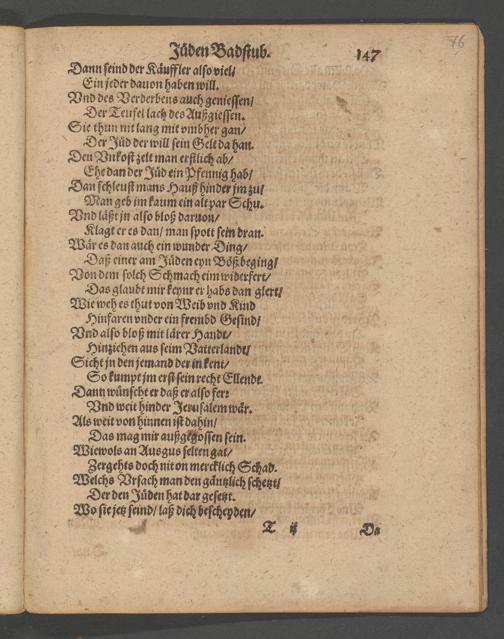 76
Jüden Badstub. 147
Dann seind der Käuffler also viel/
Ein jeder dauon haben will.
Vnd des Verderbens auch geniessen/
Der Teufel lach des Außgiessen.
Sie thun nit lang mit vmbher gan/
Der Jüd der will sein Gelt da han.
Den Vnkost zelt man erstlich ab/
Ehe dan der Jüd ein Pfennig hab/
Dan schleust mans Hauß hinder jm zu/
Man geb im kaum ein alt par Schu.
Vnd läßt jn also bloß daruon/
Klagt er es dan/ man spott sein dran.
Wär es dan auch ein wunder Ding/
Daß einer am Jüden eyn Bößbeging/
Von dem solch Schmach eim widerfert/
Das glaubt mir keynr er habs dan glert/
Wie weh es thut von Weib vnd Kind
Hinfaren vnder ein frembd Gesind/
Vnd also bloß mit lärer Handt/
Hinziehen aus seim Vatterlandt/
Sicht jn den jemand der in kent/
So kumpt jm erst sein recht Ellendt.
Dann wünscht er daß er also fer:
Vnd weit hinder Jerusalem wär.
Als weit von hinnen ist dahin/
Das mag mir außgegossen sein.
Wiewols an Ausgus selten gat/
Zergehts doch nit on mercklich Schad.
Welchs Vrsach man den gäntzlich schetzt/
Der den Jüden hat dar gesetzt.
Wo sie jetz seind/ laß dich bescheyden/
T ij Da